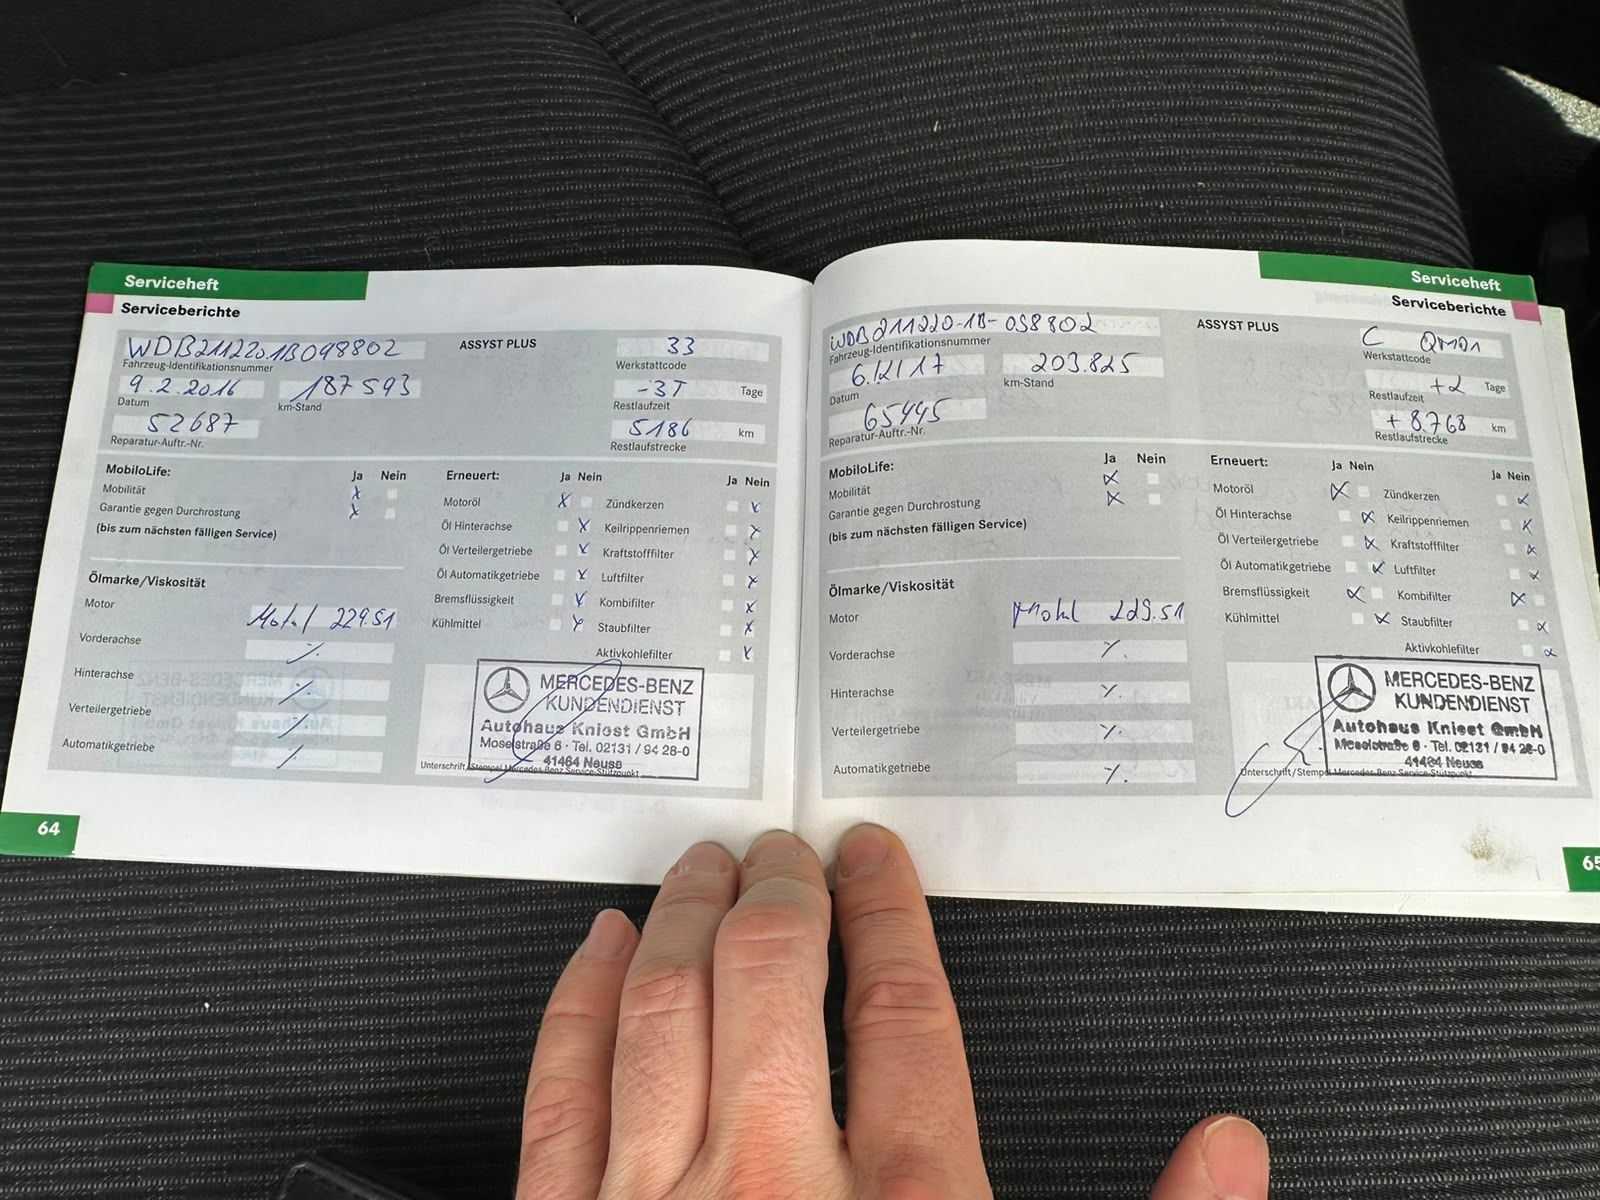 Serviceheft
Serviceberichte
WDB2112201B098802
Fahrzeug-Identifikationsnummer
ASSYST PLUS
33
Werkstattcode
9.2.2016
Datum
187593
km-Stand
-3T Tage
Restlaufzeit
52687
Reparatur-Auftr.-Nr.
5186 km
Restlaufstrecke
MobiloLife: Ja Nein
Mobilität x
Garantie gegen Durchrostung x
(bis zum nächsten fälligen Service)
Erneuert: Ja Nein
Motoröl x
Öl Hinterachse x
Öl Verteilergetriebe x
Öl Automatikgetriebe x
Bremsflüssigkeit x
Kühlmittel x
Ja Nein
Zündkerzen x
Keilrippenriemen x
Kraftstofffilter x
Luftfilter x
Kombifilter x
Staubfilter x
Aktivkohlefilter x
Ölmarke/Viskosität
Motor Motul 229.51
Vorderachse ./.
Hinterachse ./.
Verteilergetriebe ./.
Automatikgetriebe ./.
MERCEDES-BENZ
KUNDENDIENST
Autohaus Kniest GmbH
Moselstraße 6 · Tel. 02131 / 94 28-0
41464 Neuss
Unterschrift/Stempel Mercedes-Benz Service-Stützpunkt
64
Serviceheft
Serviceberichte
WDB211220-1B-098802
Fahrzeug-Identifikationsnummer
ASSYST PLUS
C
Werkstattcode
6.12.17
Datum
203.825
km-Stand
+2 Tage
Restlaufzeit
65445
Reparatur-Auftr.-Nr.
+ 8.768 km
Restlaufstrecke
MobiloLife: Ja Nein
Mobilität x
Garantie gegen Durchrostung x
(bis zum nächsten fälligen Service)
Erneuert: Ja Nein
Motoröl x
Öl Hinterachse x
Öl Verteilergetriebe x
Öl Automatikgetriebe x
Bremsflüssigkeit x
Kühlmittel x
Ja Nein
Zündkerzen x
Keilrippenriemen x
Kraftstofffilter x
Luftfilter x
Kombifilter x
Staubfilter x
Aktivkohlefilter x
Ölmarke/Viskosität
Motor Motul 229.51
Vorderachse ./.
Hinterachse ./.
Verteilergetriebe ./.
Automatikgetriebe ./.
MERCEDES-BENZ
KUNDENDIENST
Autohaus Kniest GmbH
Moselstraße 6 · Tel. 02131 / 94 28-0
41464 Neuss
Unterschrift/Stempel Mercedes-Benz Service-Stützpunkt
65